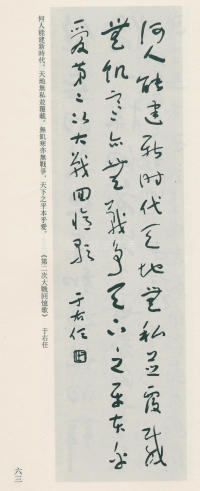 何人能建新時代天地無私並覆載
無飢寒亦無戰爭天下之平本乎
愛第二次大戰回憶歌 于右任
何人能建新時代,天地無私並覆載。無飢寒亦無戰爭,天下之平本乎愛。
——《第二次大戰回憶歌》 于右任
六三